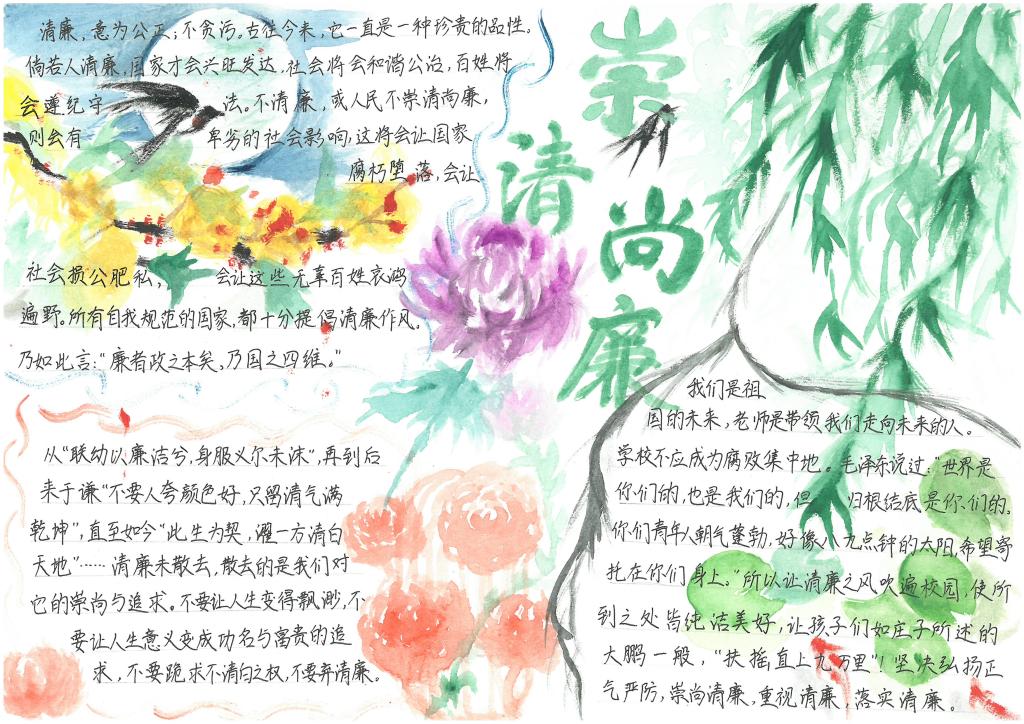 崇尚清廉
清廉,意为公正;不贪污。古往今来,它一直是一种珍贵的品性。
倘若人清廉,国家才会兴旺发达,社会将会和谐公治,百姓将
会遵纪守法。不清廉,或人民不崇清尚廉,
则会有卑劣的社会影响,这将会让国家
腐朽堕落,会让
社会损公肥私,会让这些无辜百姓衣鸿
遍野。所有自我规范的国家,都十分提倡清廉作风。
乃如此言:“廉者政之本矣,乃国之四维。”
从“联幼以廉洁兮,身服义尔未沫”,再到后
来于谦“不要人夸颜色好,只留清气满
乾坤”,直至如今“此生为契,濯一方清白
天地”……清廉未散去,散去的是我们对
它的崇尚与追求。不要让人生变得飘渺,不
要让人生意义变成功名与富贵的追
求,不要跪求不清白之权,不要弃清廉。
我们是祖
国的未来,老师是带领我们走向未来的人。
学校不应成为腐败集中地。毛泽东说过:“世界是
你们的,也是我们的,但归根结底是你们的。
你们青年人朝气蓬勃,好像八九点钟的太阳,希望寄
托在你们身上。”所以让清廉之风吹遍校园,使所
到之处皆纯洁美好,让孩子们如庄子所述的
大鹏一般,“扶摇直上九万里”!坚决弘扬正
气严防,崇尚清廉,重视清廉,落实清廉。